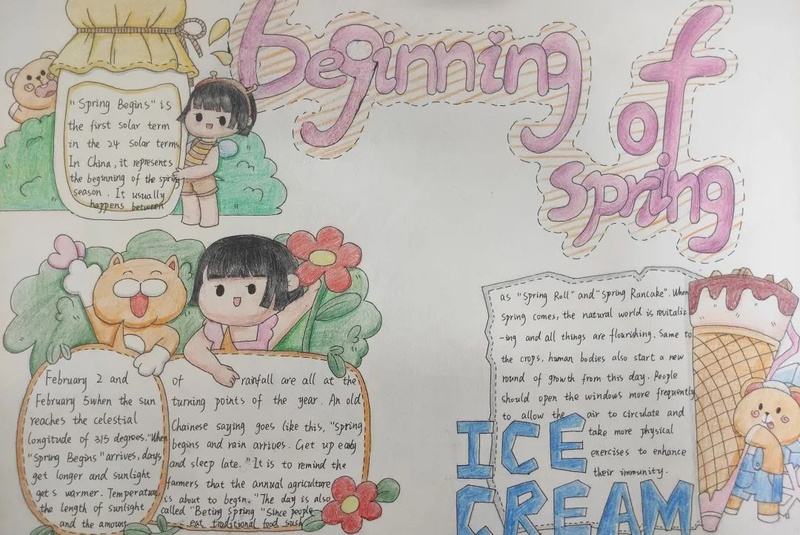 beginning
of
spring
"Spring Begins" is
the first solar term
in the 24 solar terms
In China, it represents
the beginning of the spring
season. It usually
happens between
February 2 and
February 5 when the sun
reaches the celestial
longitude of 315 degrees. "When
"Spring Begins" arrives, days
get longer and sunlight
gets warmer. Temperature,
the length of sunlight
and the amount
of rainfall are all at the
turning points of the year. An old
Chainese saying goes like this, "Spring
begins and rain arrives. Get up early
and sleep late." It is to remind the
farmers that the annual agriculture
is about to begin. "The day is also
called "Beting Spring "Since people
eat traditional food such
as "Spring Roll" and "Spring Rancake". When
spring comes, the natural world is revitaliz
-ing and all things are flourishing. Same to
the crops, human bodies also start a new
round of growth from this day. People
should open the windows more frequently
to allow the air to circulate and
take more physical
exercises to enhance
their immunity.
ICE
CREAM